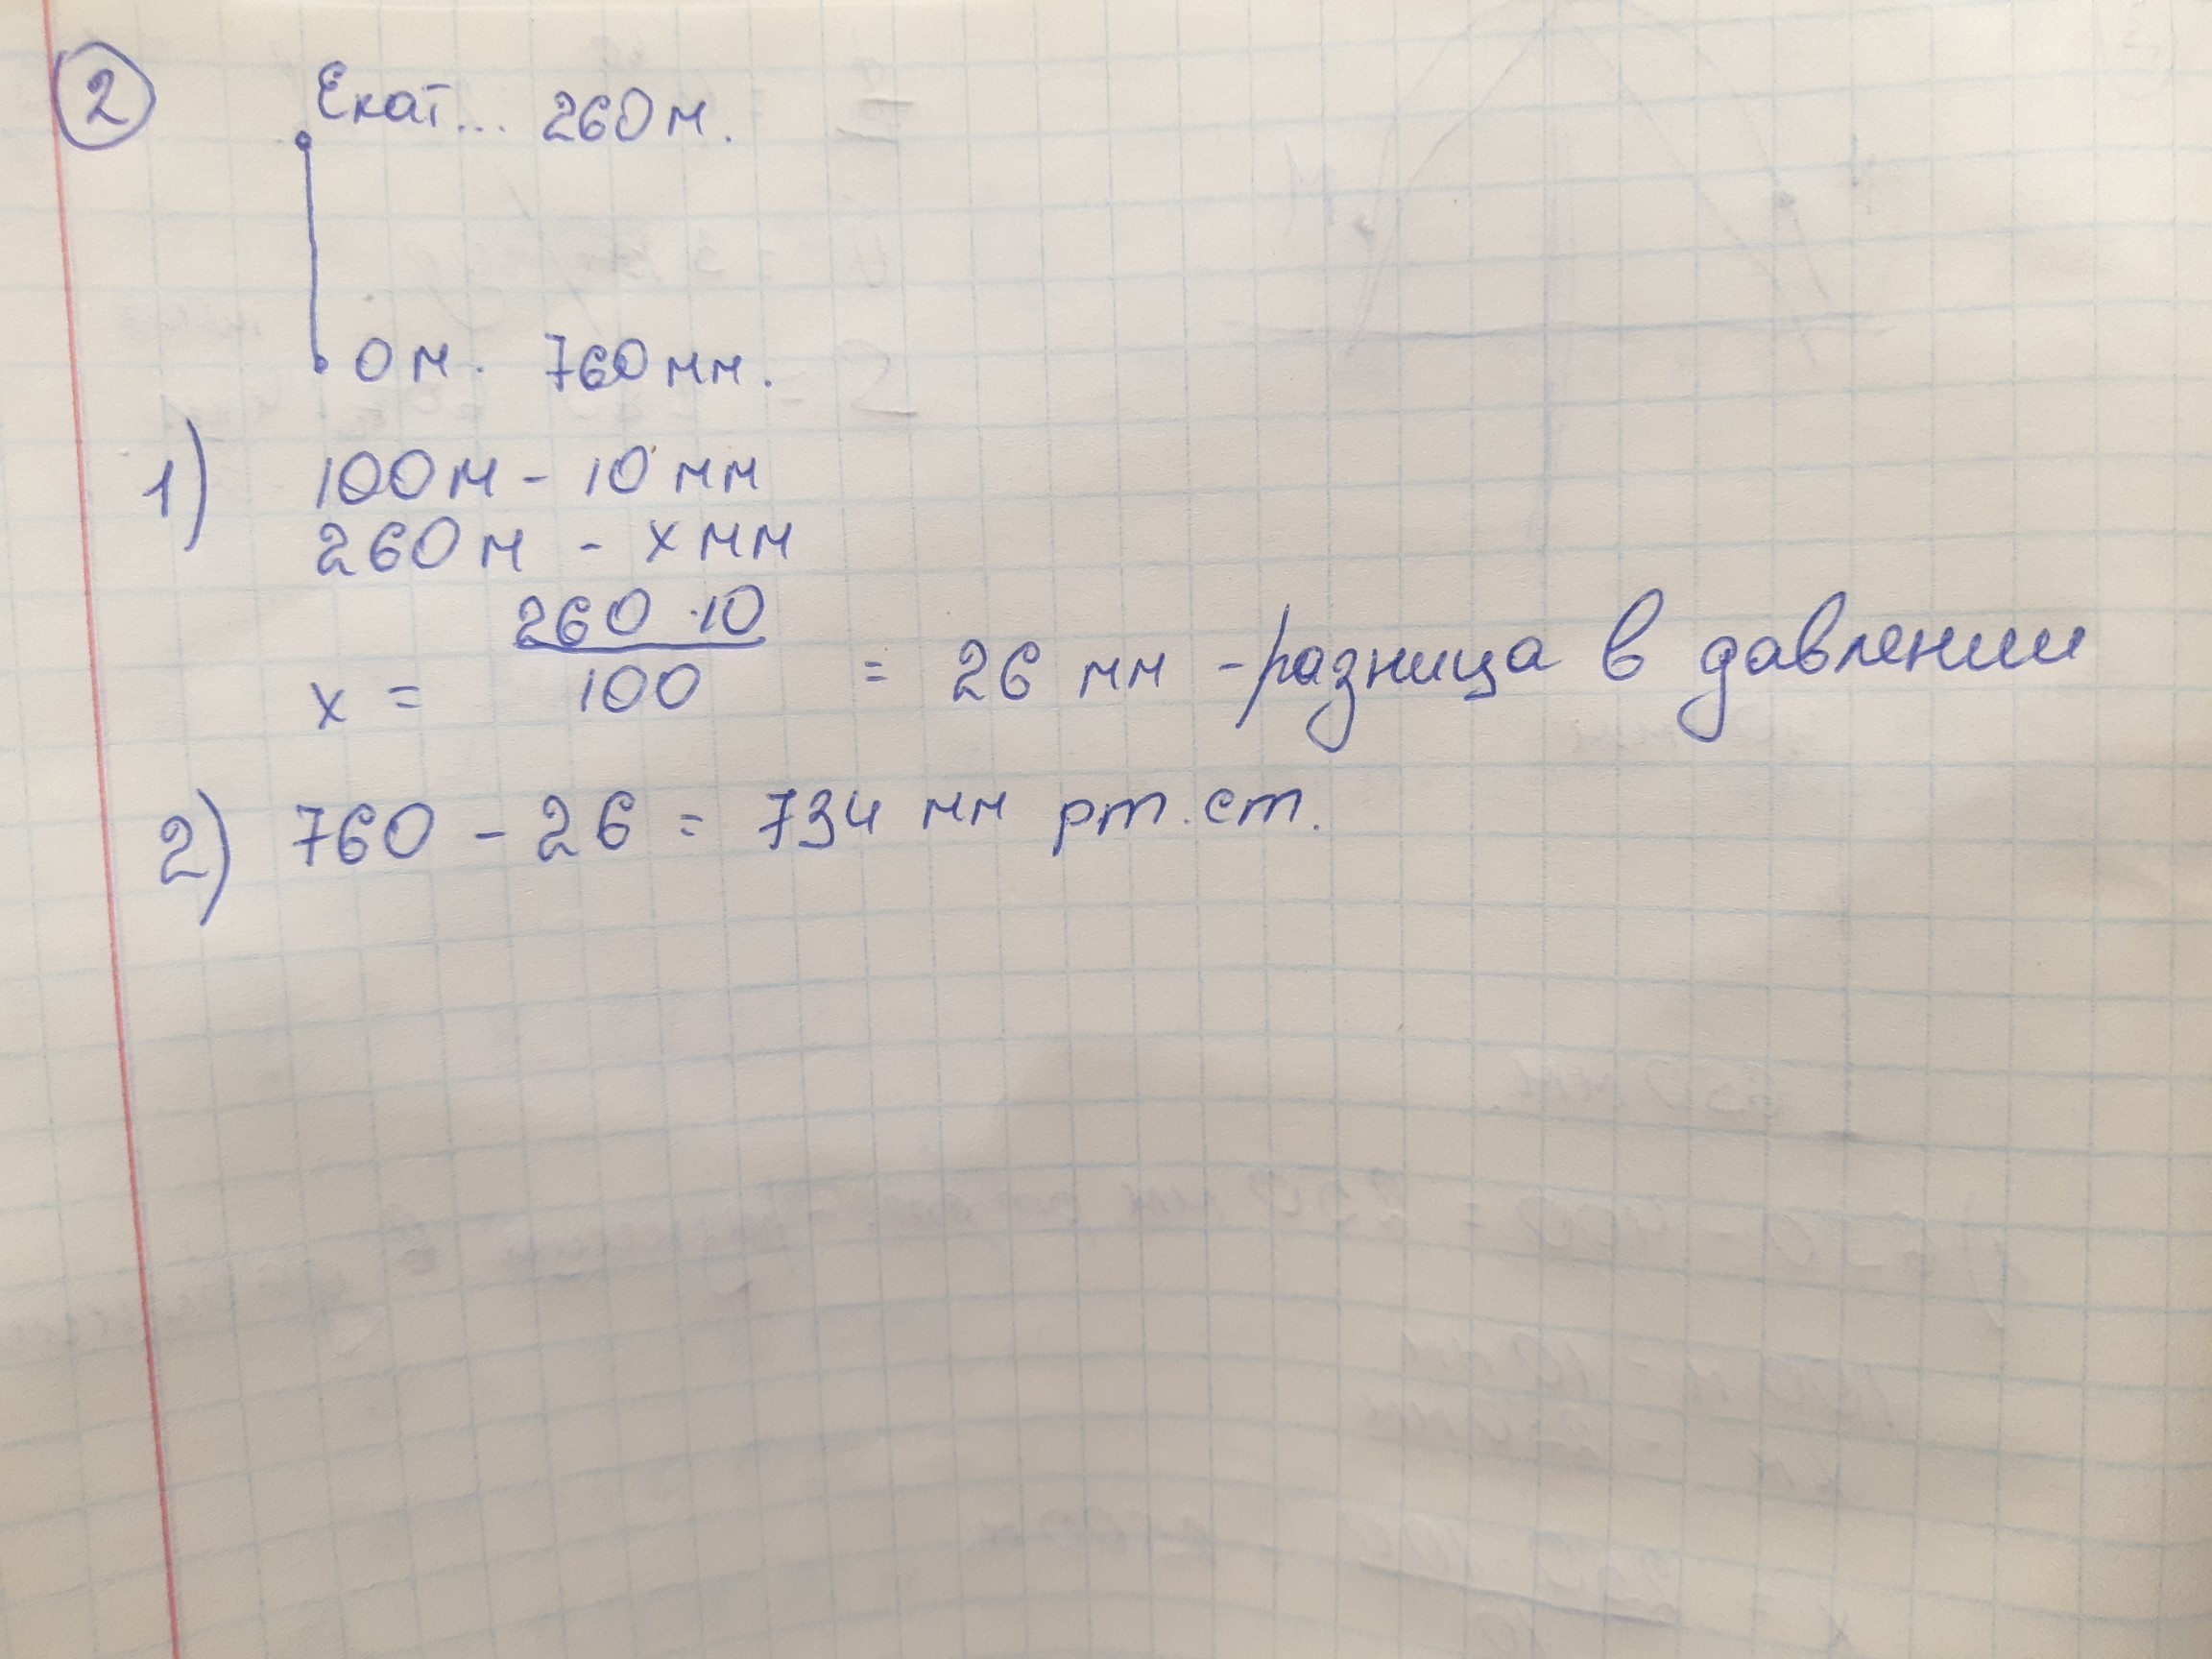 2
Екат... 260 м.
0 м. 760 мм.
1) 100 м - 10 мм
260 м - х мм
х = 260 · 10 / 100 = 26 мм - разница в давлении
2) 760 - 26 = 734 мм рт. ст.